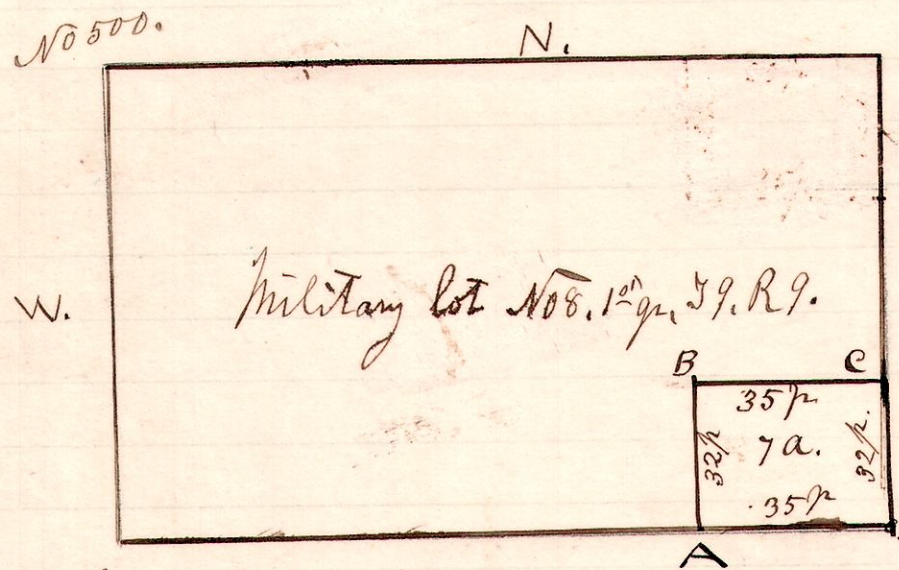 No 500.
N.
W.
Military lot No 8. 1st qr. T 9. R 9.
B C
35 p
32 p
7 a.
32 p.
35 p
A